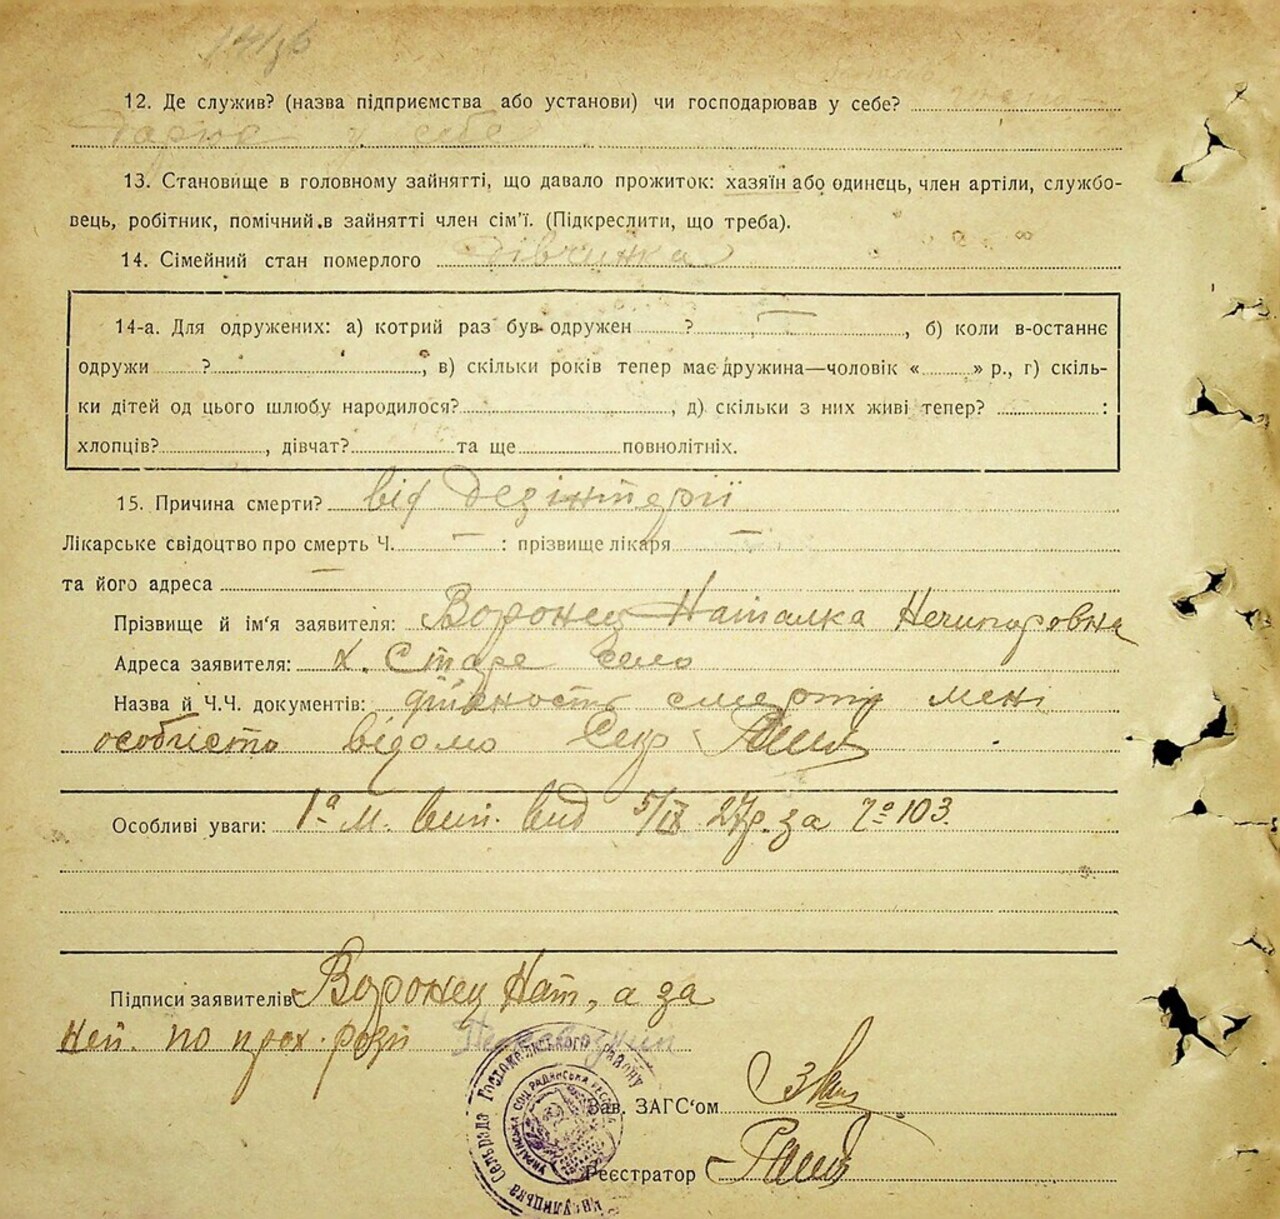 12. Де служив? (назва підприємства або установи) чи господарював у себе?
у себе
13. Становище в головному зайнятті, що давало прожиток: хазяїн або одинець, член артіли, службо-
вець, робітник, помічний в зайнятті член сім'ї. (Підкреслити, що треба).
14. Сімейний стан померлого дівчинка
14-а. Для одружених: а) котрий раз був одружен ? — , б) коли в-останнє
одружи ? , в) скільки років тепер має дружина—чоловік « » р., г) скіль-
ки дітей од цього шлюбу народилося? , д) скільки з них живі тепер? :
хлопців? , дівчат? та ще повнолітніх.
15. Причина смерти? від дезінтерії
Лікарське свідоцтво про смерть Ч. — : прізвище лікаря —
та його адреса —
Прізвище й ім'я заявителя: Воронец Наталка Нечипоровна
Адреса заявителя: х. Старе село
Назва й Ч.Ч. документів: дійсность смерти мені
особисто відомо Секр
Особливі уваги: 1а м. вип. вид 5/IX 27р. за № 103.
Підписи заявителів Воронец Нат, а за
неп. по прох. розп
Зав. ЗАГС'ом
Реєстратор
Сельрада Гостомельського району
УКРАЇНСЬКА СОЦ. РАДЯНСЬКА РЕСП